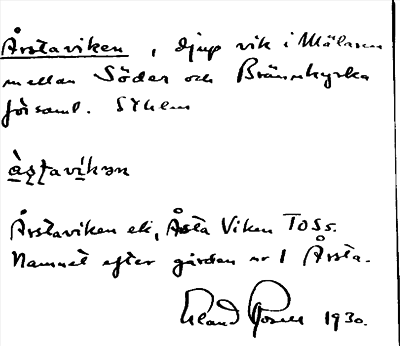 Årstaviken, djup vik i Mälaren
mellan Söder och Brännkyrka
församl. Sthlm
Årstaviken el. Årsta Viken TOSs.
Namnet efter gården nr 1 Årsta.
1930.